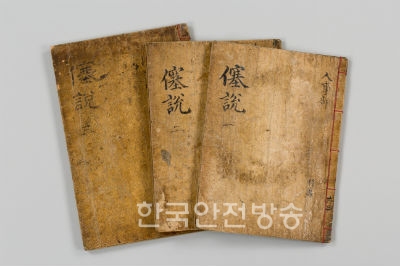 僿說
三
僿說
二
僿說
一
人事篇
한국안전방송